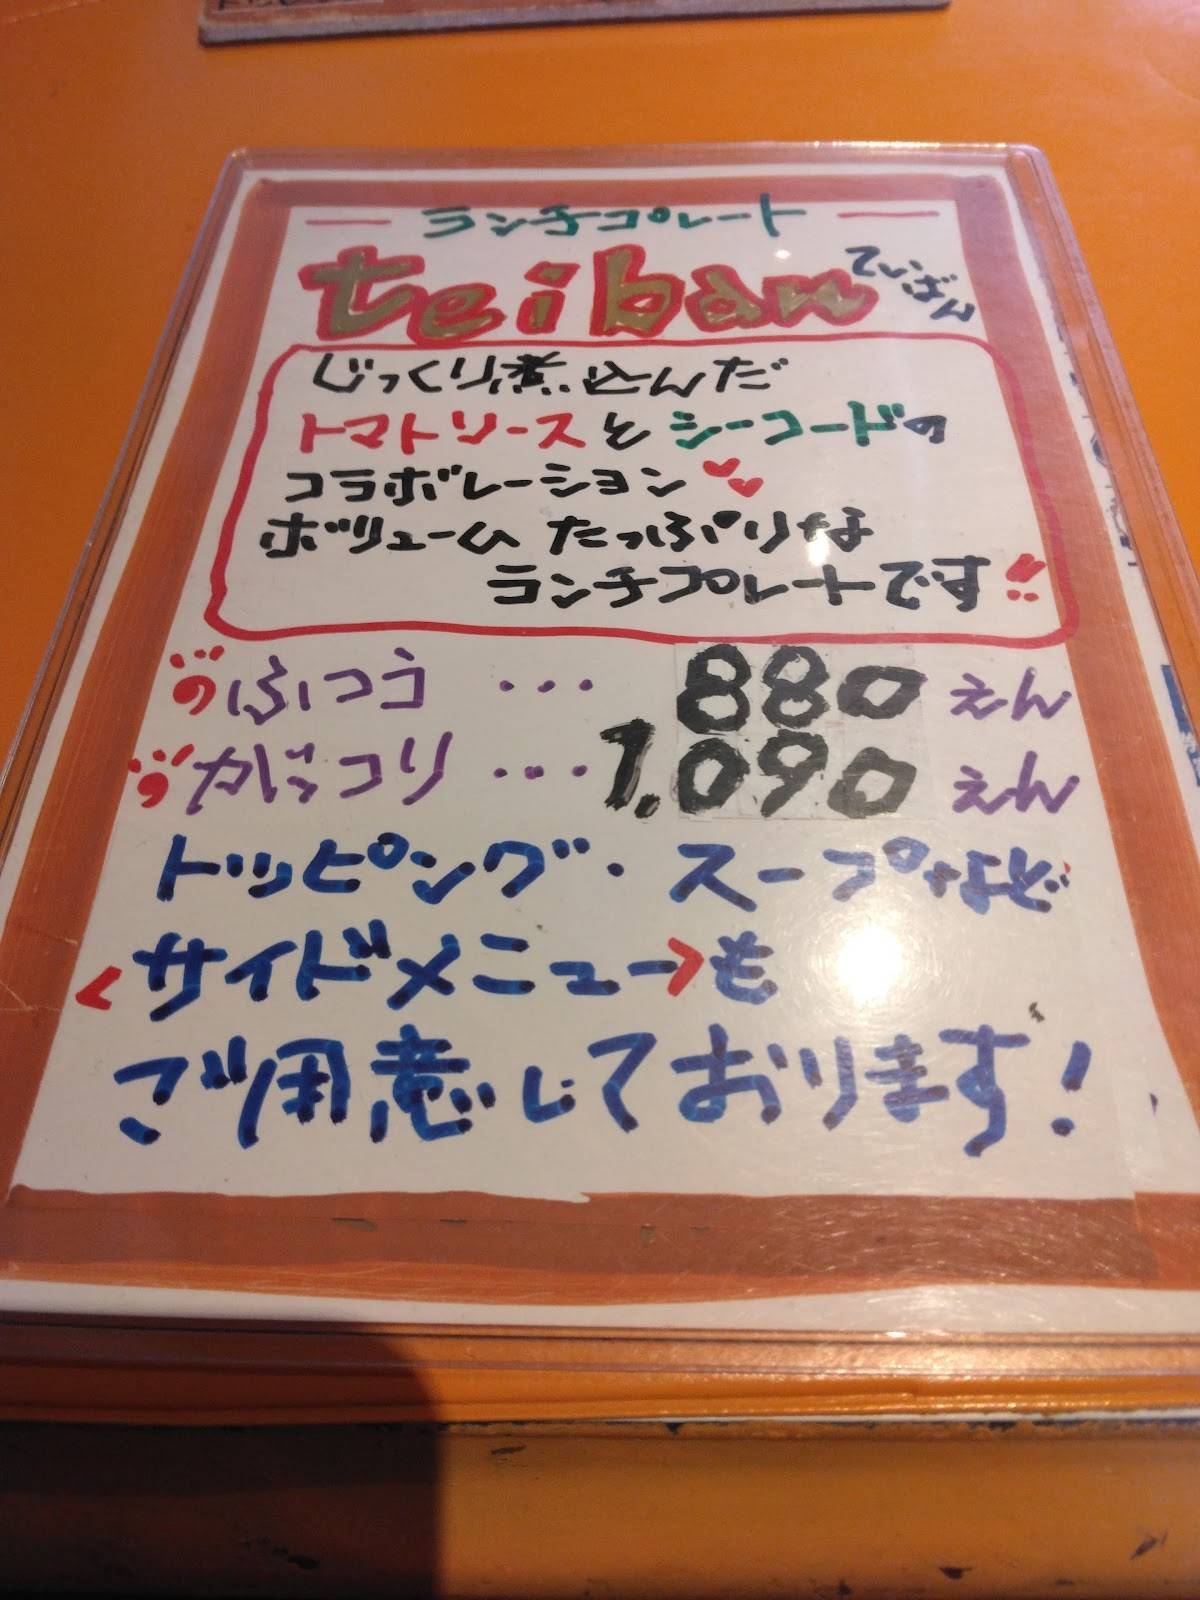 ランチプレート
teiban ていばん
じっくり煮込んだ
トマトソースとシーフードの
コラボレーション
ボリュームたっぷりな
ランチプレートです!!
ふつう ... 880 えん
がっつり ... 1,090 えん
トッピング・スープなど
<サイドメニュー>も
ご用意しております!